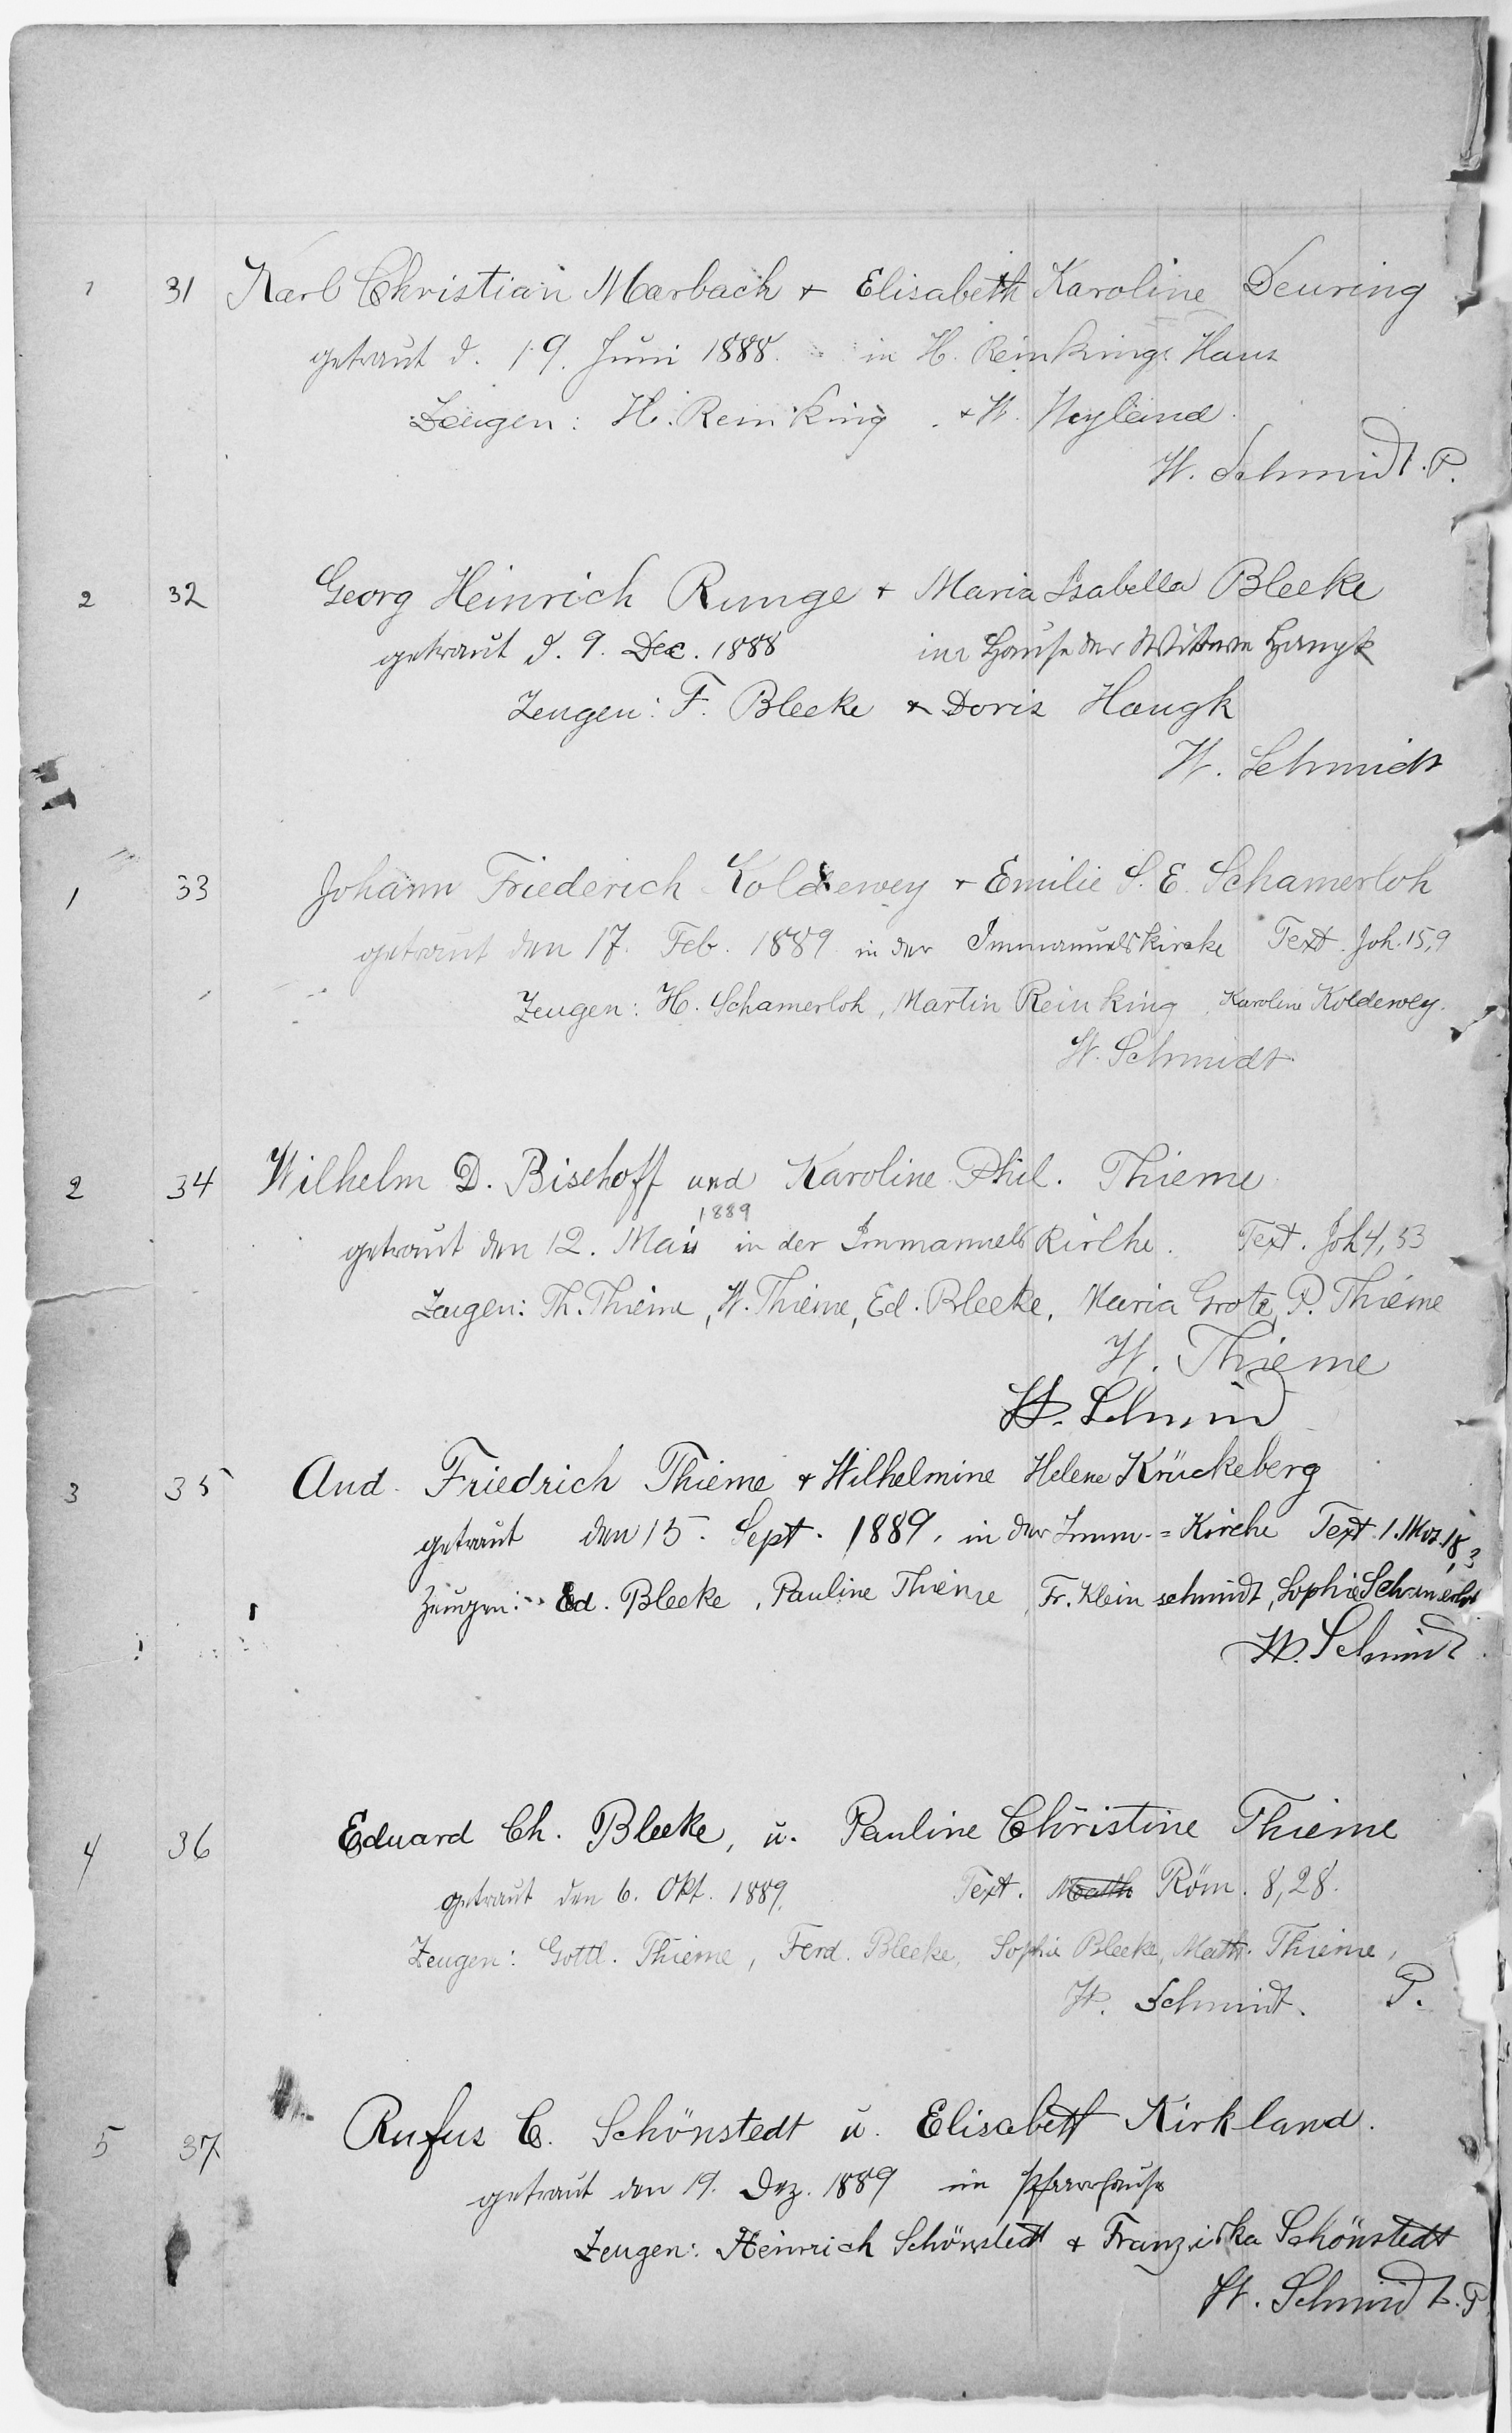 1 31 Karl Christian Marbach + Elisabeth Karoline Deuring
getraut d. 19. Juni 1888. in H. Reinkings Haus
Zeugen: H. Reinking + W. Weyland.
W. Schmidt. P.
2 32 Georg Heinrich Runge + Maria Isabella Bleeke
getraut d. 9. Dec. 1888 im Hause der Wittwe Haugk
Zeugen: F. Bleeke + Doris Haugk
W. Schmidt
1 33 Johann Friederich Koldewey + Emilie S. E. Schamerloh
getraut den 17. Feb. 1889 in der Immanuelskirche Text. Joh. 15,9
Zeugen: H. Schamerloh, Martin Reinking, Karoline Koldewey.
W. Schmidt
2 34 Wilhelm D. Bischoff und Karoline Phil. Thieme
1889
getraut den 12. Mai in der Immanuels Kirche. Text. Joh 4, 53
Zeugen: Th. Thieme, W. Thieme, Ed. Bleeke, Maria Grote, P. Thieme
W. Thieme
W. Schmid
3 35 And. Friedrich Thieme + Wilhelmine Helene Krückeberg
getraut den 15. Sept. 1889. in der Imm.=Kirche Text. 1. Mos. 18,3
Zeugen: Ed. Bleeke, Pauline Thieme, Fr. Kleinschmidt, Sophie Schamerloh
W. Schmidt
4 36 Eduard Ch. Bleeke, u. Pauline Christine Thieme
getraut den 6. Okt. 1889. Text. Math Röm. 8,28.
Zeugen: Gottl. Thieme, Ferd. Bleeke, Sophie Bleeke, Math. Thieme,
W. Schmidt. P.
5 37 Rufus C. Schönstedt u. Elisabeth Kirkland.
getraut den 19. Dez. 1889 im Pfarrhause
Zeugen: Heinrich Schönstedt + Franziska Schönstedt
W. Schmidt. P.